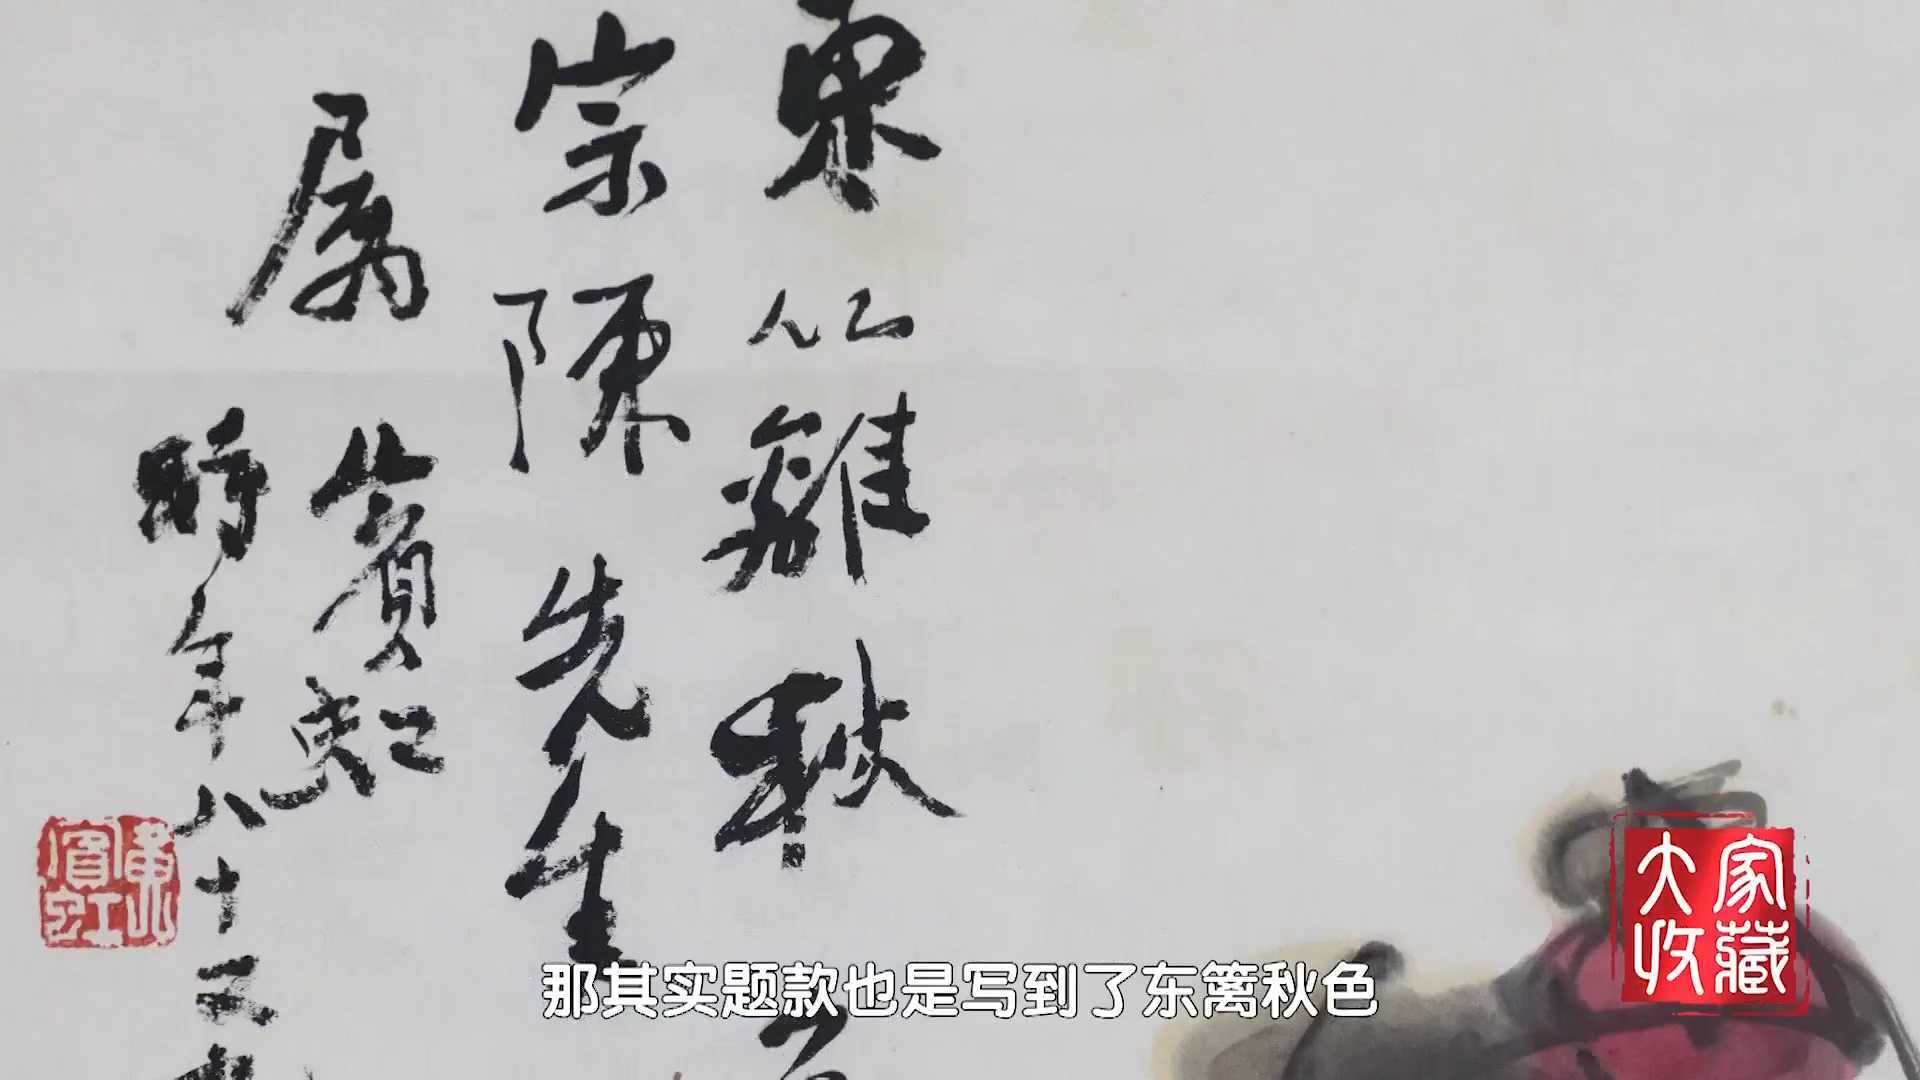 東籬秋色
宗陳先生
属
賓虹
時年八十又
黄賓虹
大家收藏
那其实题款也是写到了东篱秋色